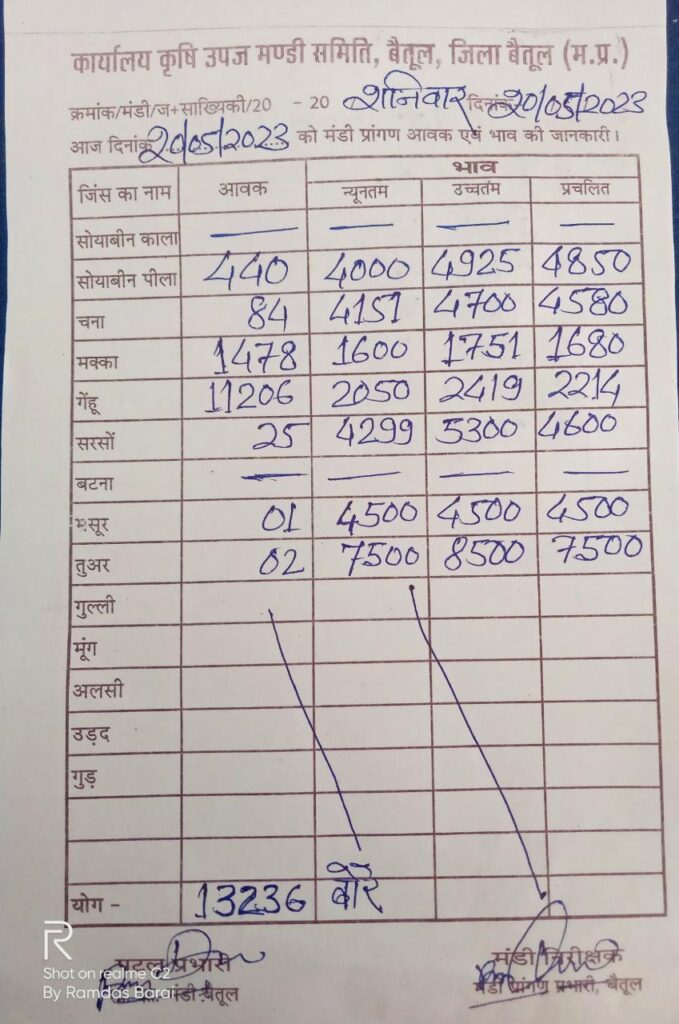 कार्यालय कृषि उपज मण्डी समिति, बैतूल, जिला बैतूल (म.प्र.)
क्रमांक/मंडी/ज+साख्यिकी/20 - 20 शनिवार दिनांक 20/05/2023
आज दिनांक 20/05/2023 को मंडी प्रांगण आवक एवं भाव की जानकारी।
जिंस का नाम आवक भाव
न्यूनतम उच्चतंम प्रचलित
सोयाबीन काला — — — —
सोयाबीन पीला 440 4000 4925 4850
चना 84 4151 4700 4580
मक्का 1478 1600 1751 1680
गेंहू 11206 2050 2419 2214
सरसों 25 4299 5300 4600
बटना — — — —
मसूर 01 4500 4500 4500
तुअर 02 7500 8500 7500
गुल्ली
मूंग
अलसी
उड़द
गुड़
योग - 13236 बोरे
प्रभारी मंडी निरीक्षक
मंडी बैतूल मंडी प्रांगण प्रभारी, बैतूल
Shot on realme C2
By Ramdas Barai